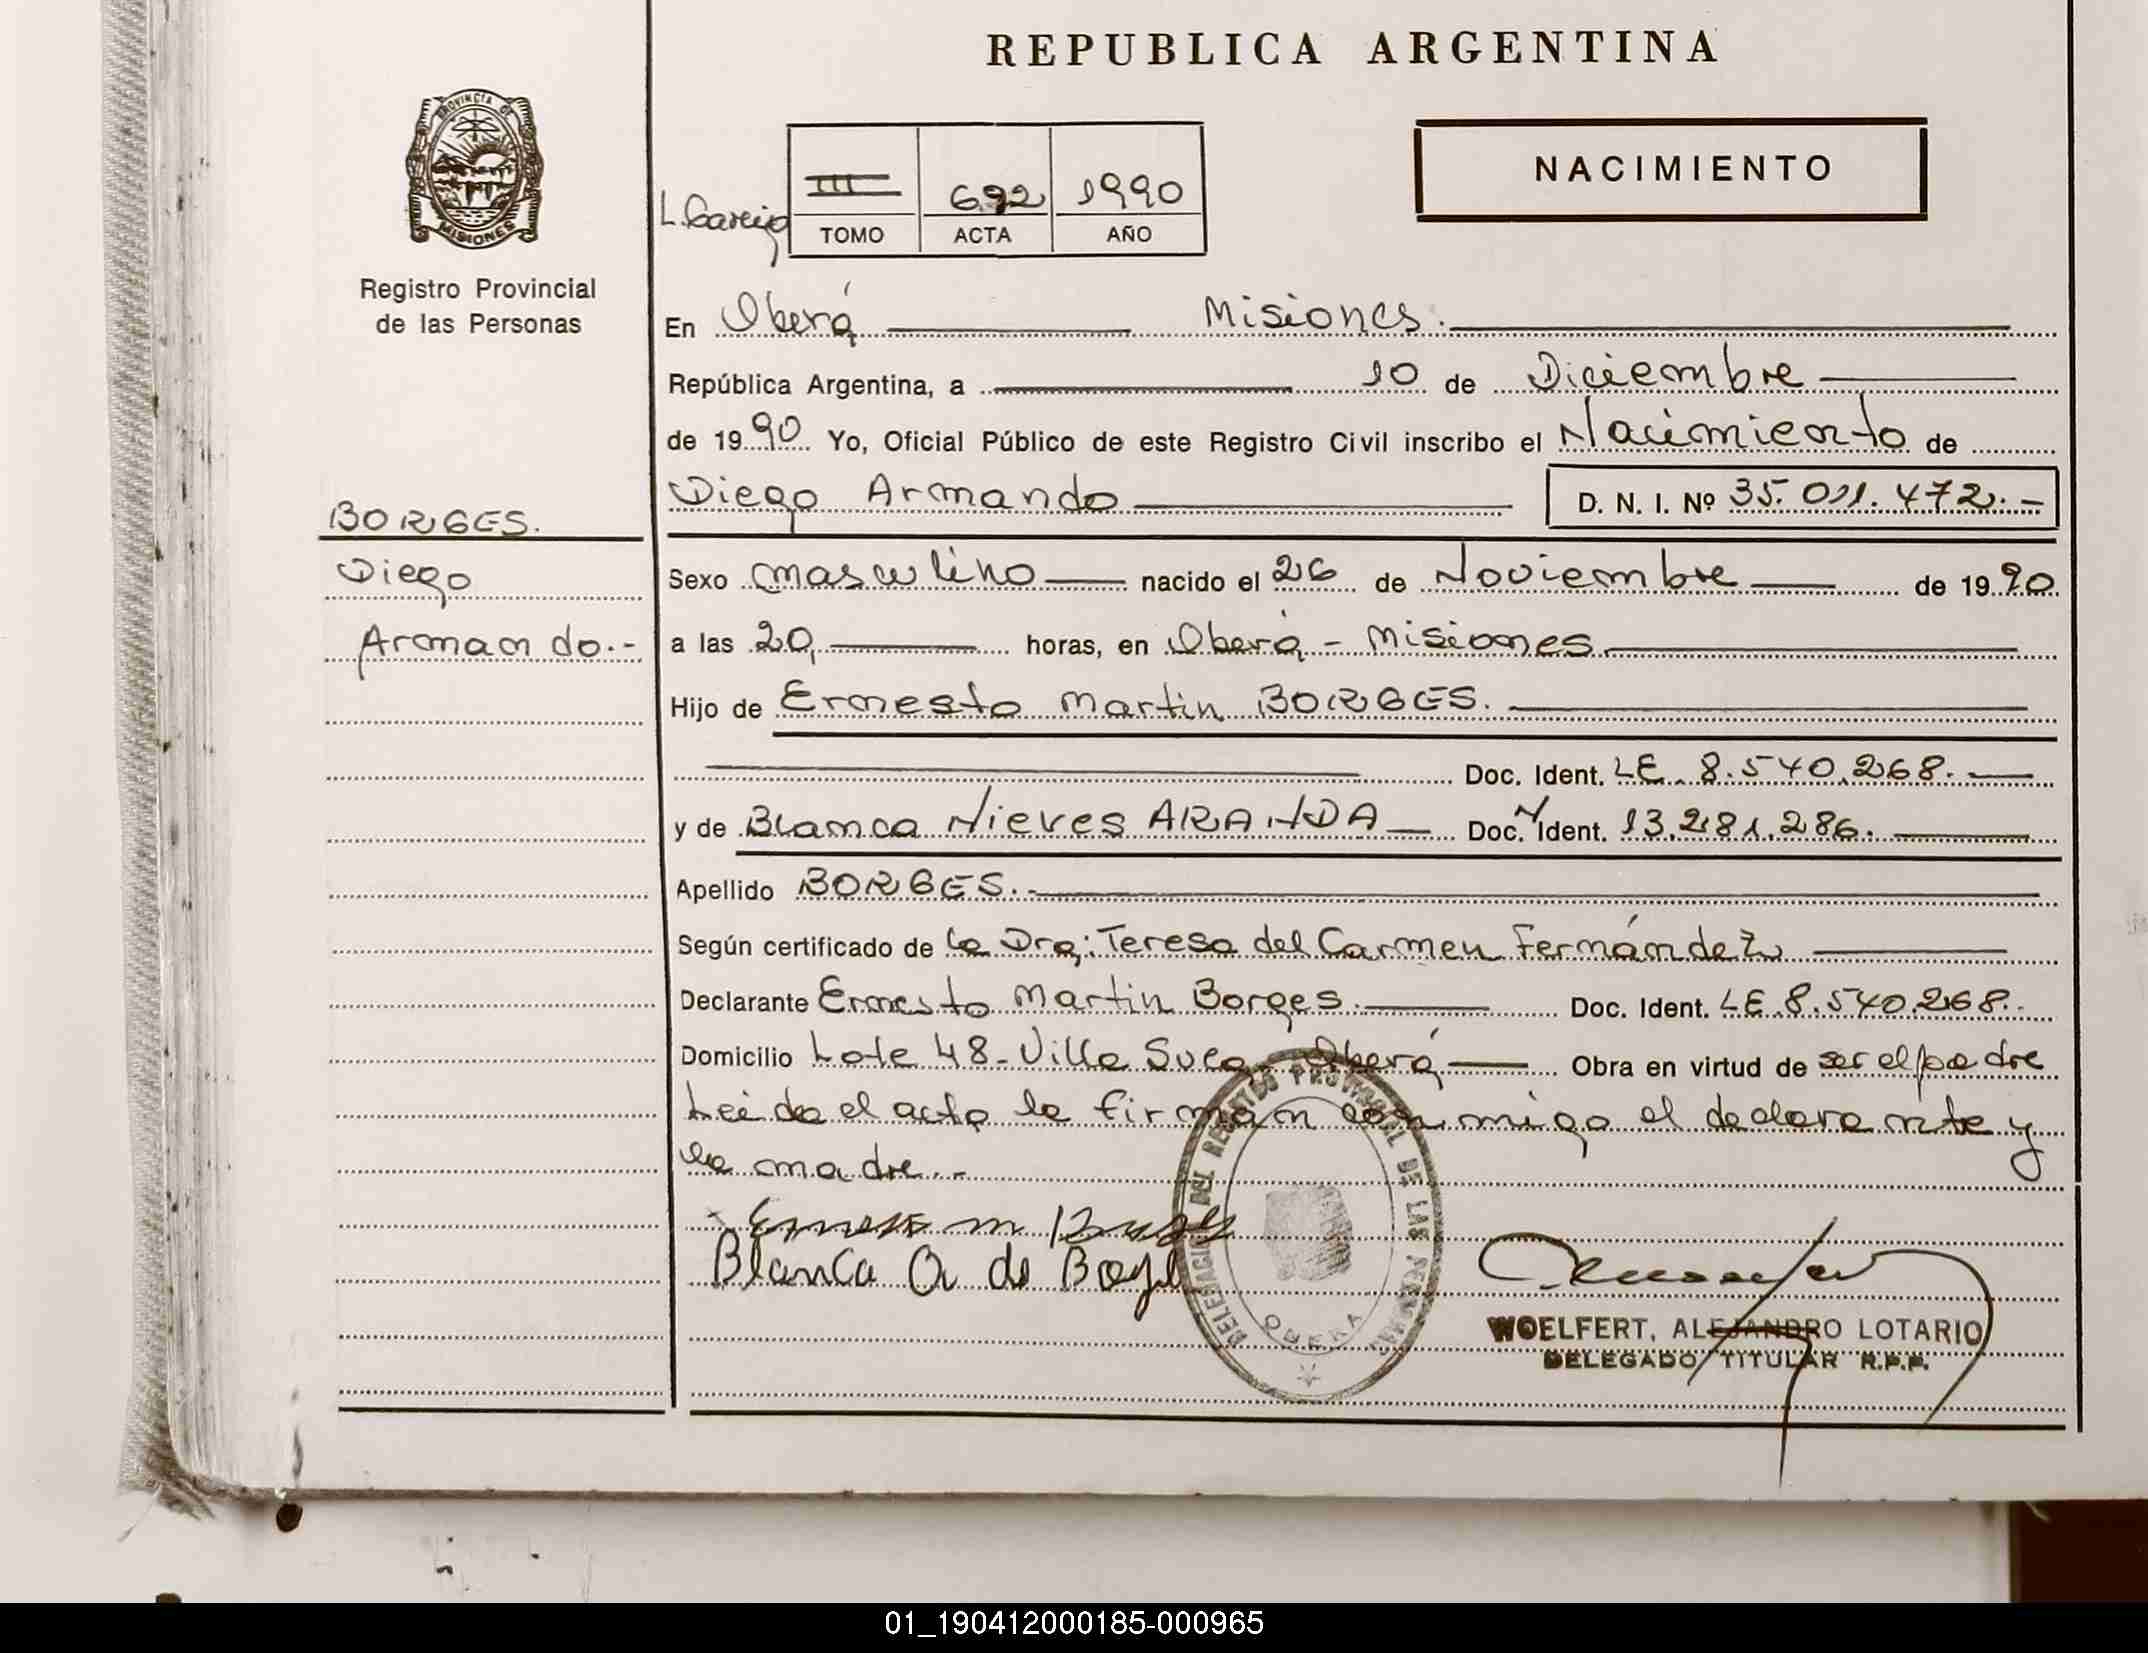 REPUBLICA ARGENTINA
PROVINCIA DE
MISIONES
Registro Provincial
de las Personas
NACIMIENTO
III 692 1990
TOMO ACTA AÑO
En Oberá Misiones.
República Argentina, a 10 de Diciembre
de 1990 Yo, Oficial Público de este Registro Civil inscribo el Nacimiento de
Diego Armando D. N. I. Nº 35.011.472.-
BORGES.
Diego
Armando.-
Sexo masculino nacido el 26 de Noviembre de 1990.
a las 20, horas, en Oberá - Misiones
Hijo de Ernesto Martin BORGES.
Doc. Ident. LE. 8.540.268.
y de Blanca Nieves ARANDA Doc. N Ident. 13.281.286.
Apellido BORGES.-
Según certificado de la Dra: Teresa del Carmen Fernández
Declarante Ernesto Martin Borges. Doc. Ident. LE.8.540.268.-
Domicilio Lote 48-Villa Suea-Oberá Obra en virtud de ser el padre
Leida el acta la firman conmigo el declarante y
la madre.-
Blanca A de
DELEGACION DEL REGISTRO PROVINCIAL DE LAS PERSONAS
OBERA
WOELFERT, ALEJANDRO LOTARIO
DELEGADO TITULAR R.P.P.
01_190412000185-000965